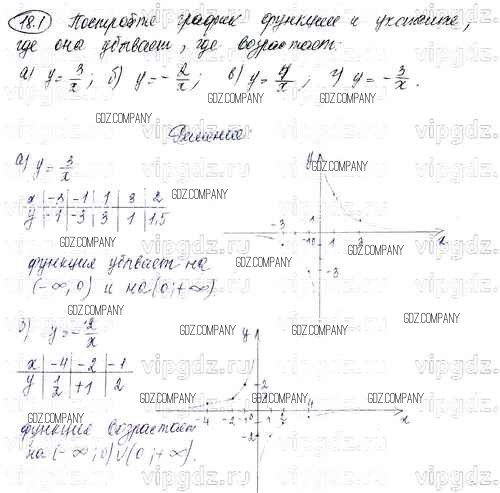 18.1 Постройте график функции и укажите,
где она убывает, где возрастает:
а) y = 3/x; б) y = -2/x; в) y = 4/x; г) y = -3/x.
Решение:
а) y = 3/x
x | -3 | -1 | 1 | 3 | 2
y | -1 | -3 | 3 | 1 | 1,5
функция убывает на
(-∞, 0) и на (0; +∞)
y
-3 1 -1 0 1 3 x
-3
б) y = -2/x
x | -4 | -2 | -1
y | 1/2 | +1 | 2
функция возрастает
на (-∞; 0) ∪ (0; +∞).
y
2
-4 -2 -1 0 1 4 x
-2
GDZ.COMPANY
vipgdz.ru